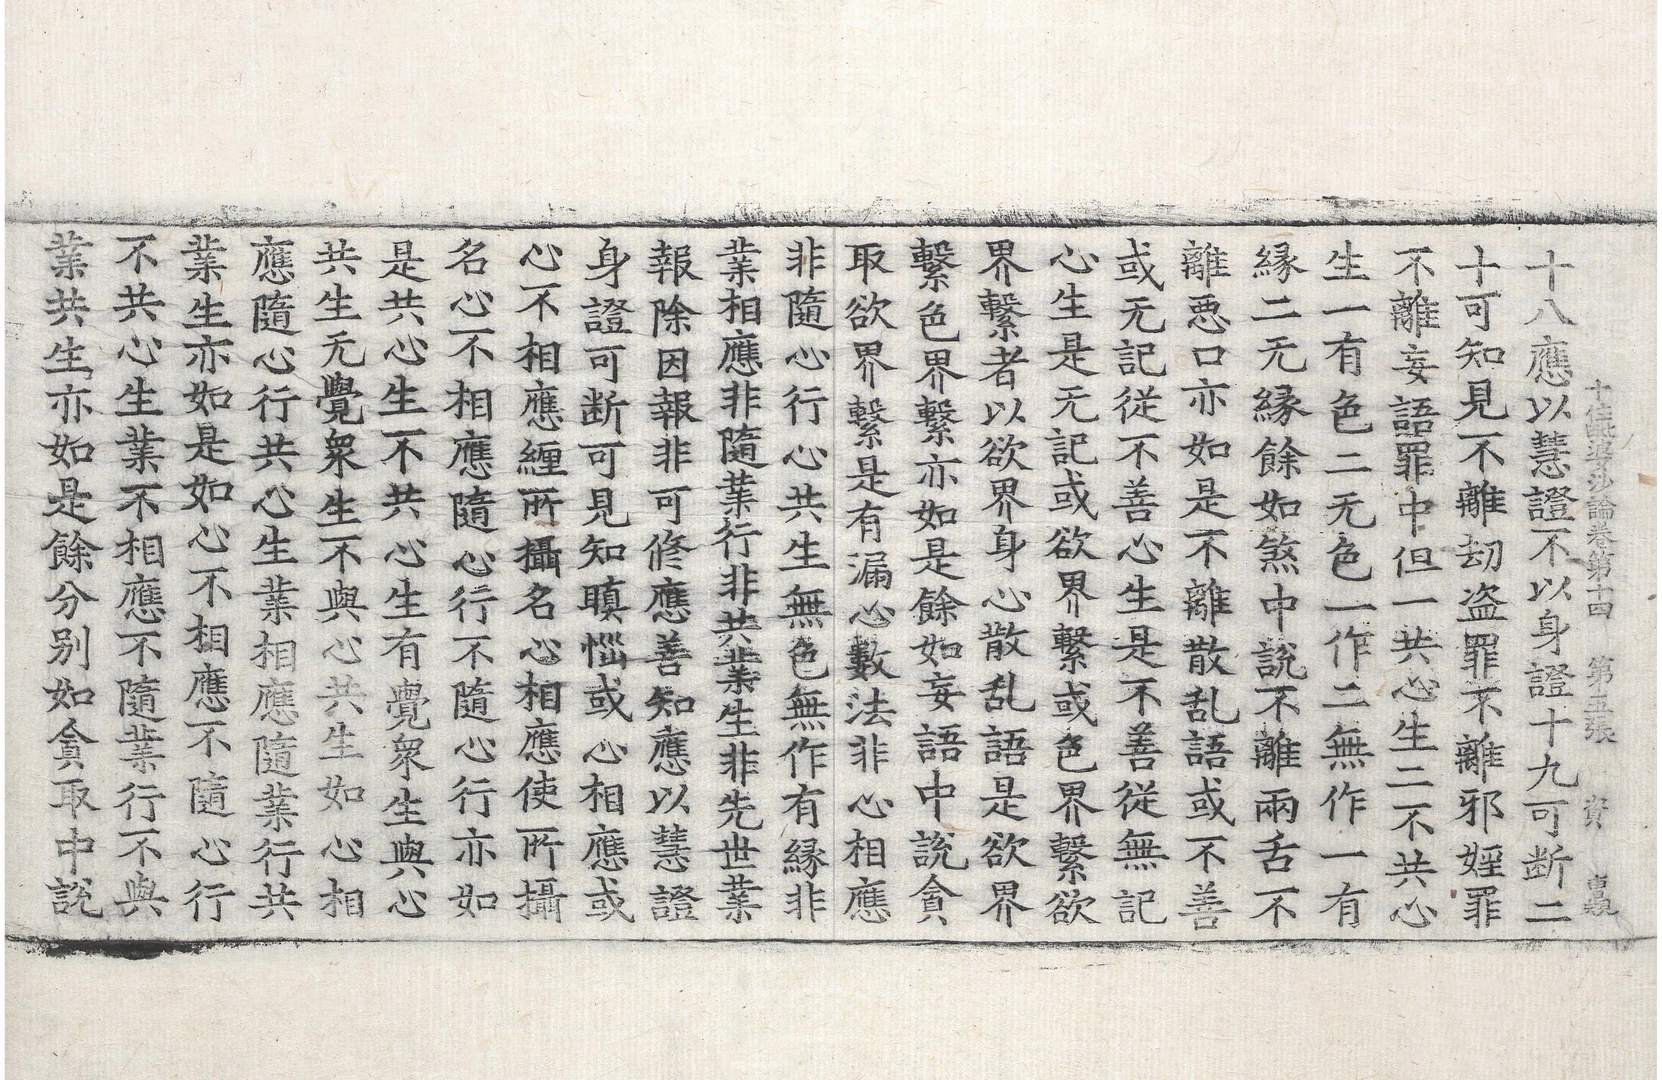 十住毗婆沙論卷第十四　第五張　資
十八應以慧證不以身證十九可断二
十可知見不離劫盗罪不離邪婬罪
不離妄語罪中但一共心生二不共心
生一有色二无色一作二無作一有
縁二无縁餘如煞中說不離兩舌不
離惡口亦如是不離散乱語或不善
或无記從不善心生是不善從無記
心生是无記或欲界繫或色界繫欲
界繫者以欲界身心散乱語是欲界
繫色界繫亦如是餘如妄語中說貪
取欲界繫是有漏心數法非心相應
非隨心行心共生無色無作有縁非
業相應非隨業行非共業生非先世業
報除因報非可修應善知應以慧證
身證可断可見知瞋惱或心相應或
心不相應纏所攝名心相應使所攝
名心不相應隨心行不隨心行亦如
是共心生不共心生有覺眾生與心
共生无覺眾生不與心共生如心相
應隨心行共心生業相應隨業行共
業生亦如是如心不相應不隨心行
不共心生業不相應不隨業行不與
業共生亦如是餘分別如貪取中說